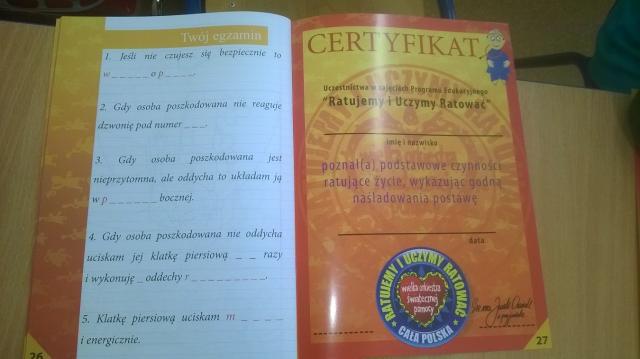 Twój egzamin
1. Jeśli nie czujesz się bezpiecznie to
w _ _ _ _ _ _ o p _ _ _ _ .
2. Gdy osoba poszkodowana nie reaguje
dzwonię pod numer _ _ _.
3. Gdy osoba poszkodowana jest
nieprzytomna, ale oddycha to układam ją
w p _ _ _ _ _ _ _ bocznej.
4. Gdy osoba poszkodowana nie oddycha
uciskam jej klatkę piersiową _ _ razy
i wykonuję _ oddechy r _ _ _ _ _ _ _ _ _.
5. Klatkę piersiową uciskam m _ _ _ _
i energicznie.
26
CERTYFIKAT
Uczestnictwa w zajęciach Programu Edukacyjnego
"Ratujemy i Uczymy Ratować"
imię i nazwisko
poznał(a) podstawowe czynności
ratujące życie, wykazując godną
naśladowania postawę
data
RATUJEMY I UCZYMY RATOWAĆ
wielka orkiestra
świątecznej
pomocy
CAŁA POLSKA
27